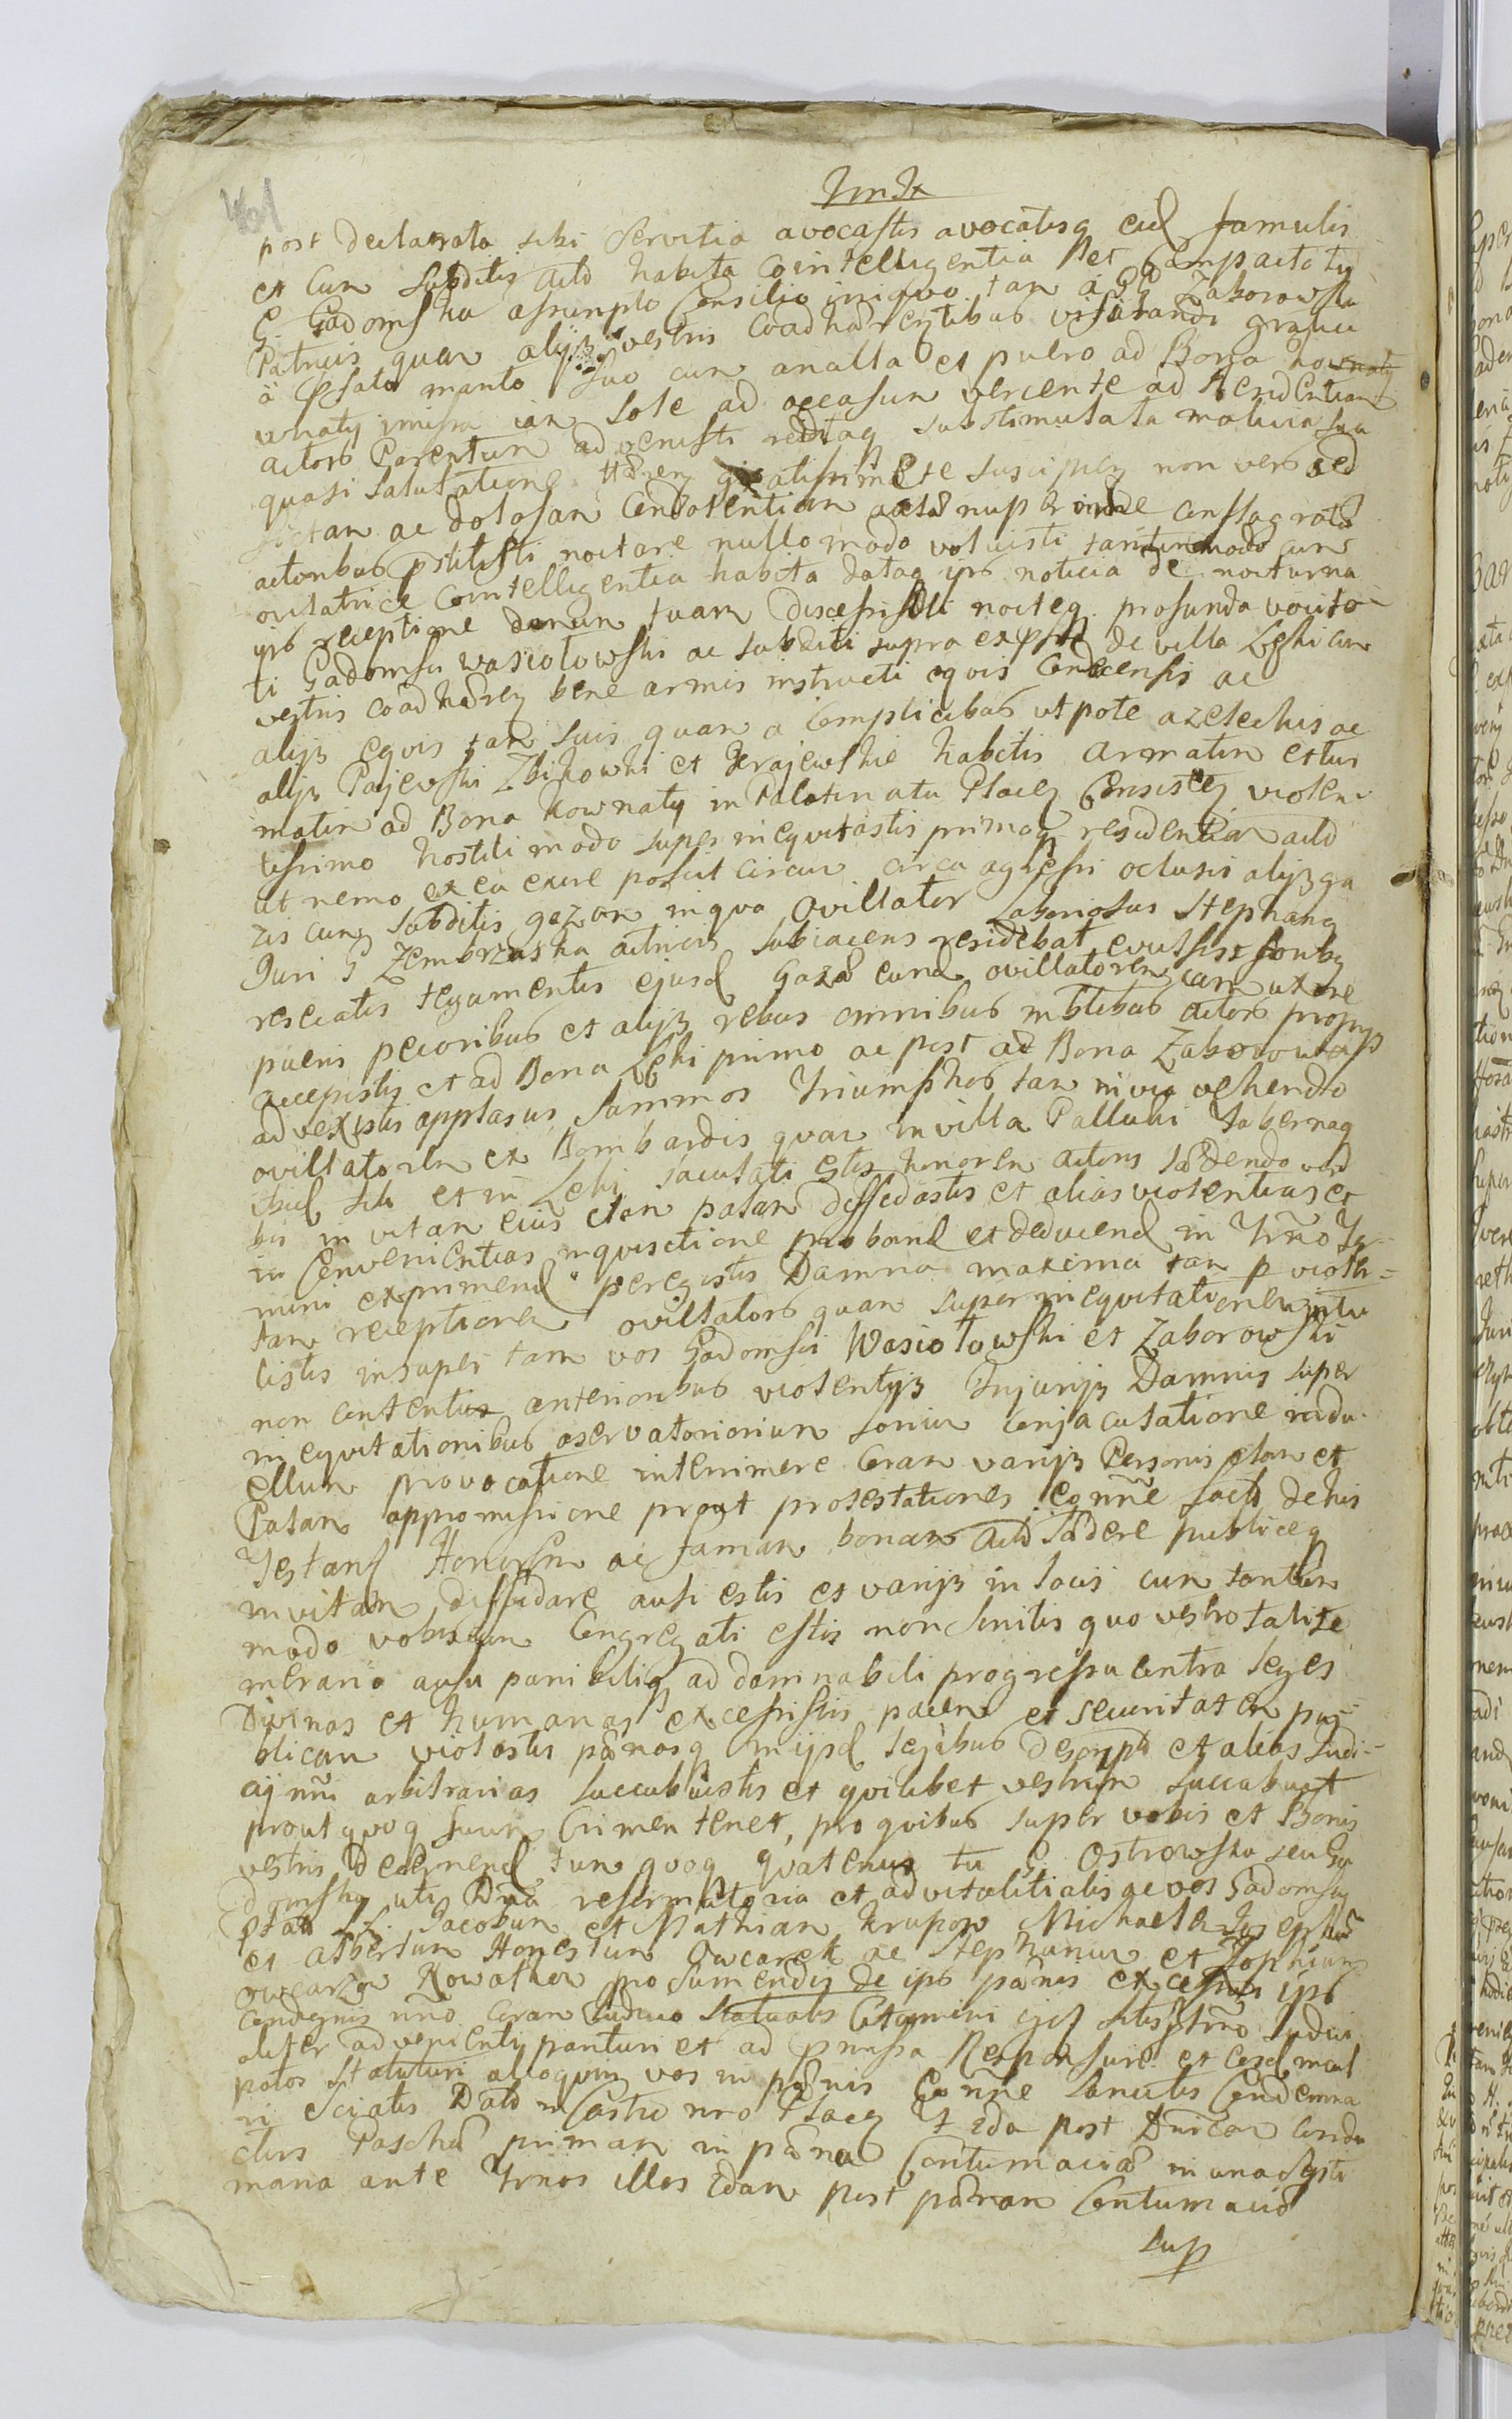 post declarata sibi Servitia avocastis avocatisq eisd famulis
et Cum Subditis actō habita Cointelligentia Per Compacto tu
G. Gadomska assumpto Consilio iniquo tam a GG Zaborowska
Patruis quam alijs vestris Coadhærentibus visitandi gratia
a Psato marito suo cum analla et puero ad Bona
wnaty imissa iam Sole ad occasum vercente ad Residentiam
actors Parentum advenisti redtaq substimulata malicia sua
quasi Salutatione gratissime te suscipien non vero sed
fictam ac dolosam Condolentiam nuper inde Conflagrata
actoribus pstitisti noctare nullo modo voluisti tantummodo cum
ovilatrice Cointelligentia habita dataq ips noticia de nocturna
ips receptione domum tuam discessisti nocteq profunda vocito
ti Gadomsci Wasiołowski ac subditi supra expssi de villa Łęki cum
vestris coadhæren bene armis instructi equis Conscensis ac
alijs equis tam suis quam a Complicibus utpote azelechis ac
alijs Pajewski Zbikowski et Krajewskie habitis armatim et tur
matim ad Bona Kownaty in Palatinatu Plocen Consisten violen
tissimo hostili modo super inequitastis primaq residentiam actō
ut nemo ex ea exire possit circum circa agressi oclusis alijs ga
zis cum Subditis gazam in qua Ovillator Laboriosus Stephanq
Juri G Zembrzuska actricis Subiacens residebat evulsis
resecatis tegumentis ejusd Gazæ eund ovillatorem cum uxore
pueris pecoribus et alijs rebus omnibus mblibus actors proprijs
accepistis et ad Bona Łęki primo ac post ad Bona Zaborowo
advexistis applasus Summos Triumphos tam in via vehendo
ovillatorem ex Bombardis quam in villa Palluki tabernaq
ibid sita et in Łęki Jaculati estis honorem actoris lædendo verb
bis in vitam eius clam palam diffidastis et alias violentias et
in Convenientias inquisitione proband et deducend in Trno Ter
mini exprimend peregistis Damna maxima tam p violen=
tam receptionem ovillators quam super inequitationem intu
listis insuper tam vos Gadomsci Wasiołowski et Zaborowski
non Contentis anterioribus violentijs Injurijs Damnis super
inequitationibus aservatoriorum Sonia Conjaculatione in du
ellum provocatione interimere Coram varijs Personis clam et
Palam appromissione prout protestationes eo nñe factæ de his
Testand Honorem ac famam bonam actō lædere publiceq
in vitam diffidare ausi estis et varijs in locis cum tantum
modo vobiscum Congregati estis non sinitis quo vestro tali te
merario ausu punibiliq ad damnabili progressu Contra Leges
Divinas et humanas excessistis pacem et securitatem pu-
blicam violastis pænasq in ijsd legibus descript et alias Judi-
cij nñi arbitrarias Succubuistis et quilibet vestrum Succubuit
prout quoq Suum Crimen tenet, pro quibus super vobis et Bonis
vestris Decernend tum quoq quatenus tu G Ostrowska seu Ga
domska uti Dña reformatoria et advitalitialis ac vos Gadomscy
pstatis LL. Jacobum et Mathiam Krupow Michaelem Josephum
et Albertum Honestum Owcarek ac Stephanum et Sophiam
owcarzow Kowalkow pro sumendis de ips pænis excessui ips
Condignis nño Coram Judicio Statuatis Citamini ejs sitis ptrno Judici
aliter advenienti parituri et ad pmissa Responsuri et Eosd incul
patos Statuturi alioquin vos in pænis Eo nñe Sancitis Condemna
ri Sciatis Dato in Castro nro Plocen f 2da post Dñicam Condu
ctus Paschæ primam in pæna Contumaciæ in una Septi
mana ante Trnos illos 2dam post pænam Contumaciæ
sup